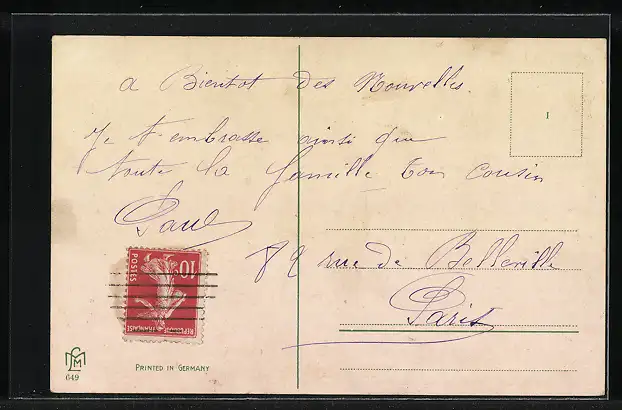 a Bientot des Nouvelles.
Je t'embrasse ainsi que
toute la famille ton cousin
Paul
82 rue de Belleville
Paris
1
10c
POSTES
REPUBLIQUE FRANÇAISE
PRINTED IN GERMANY
M
649